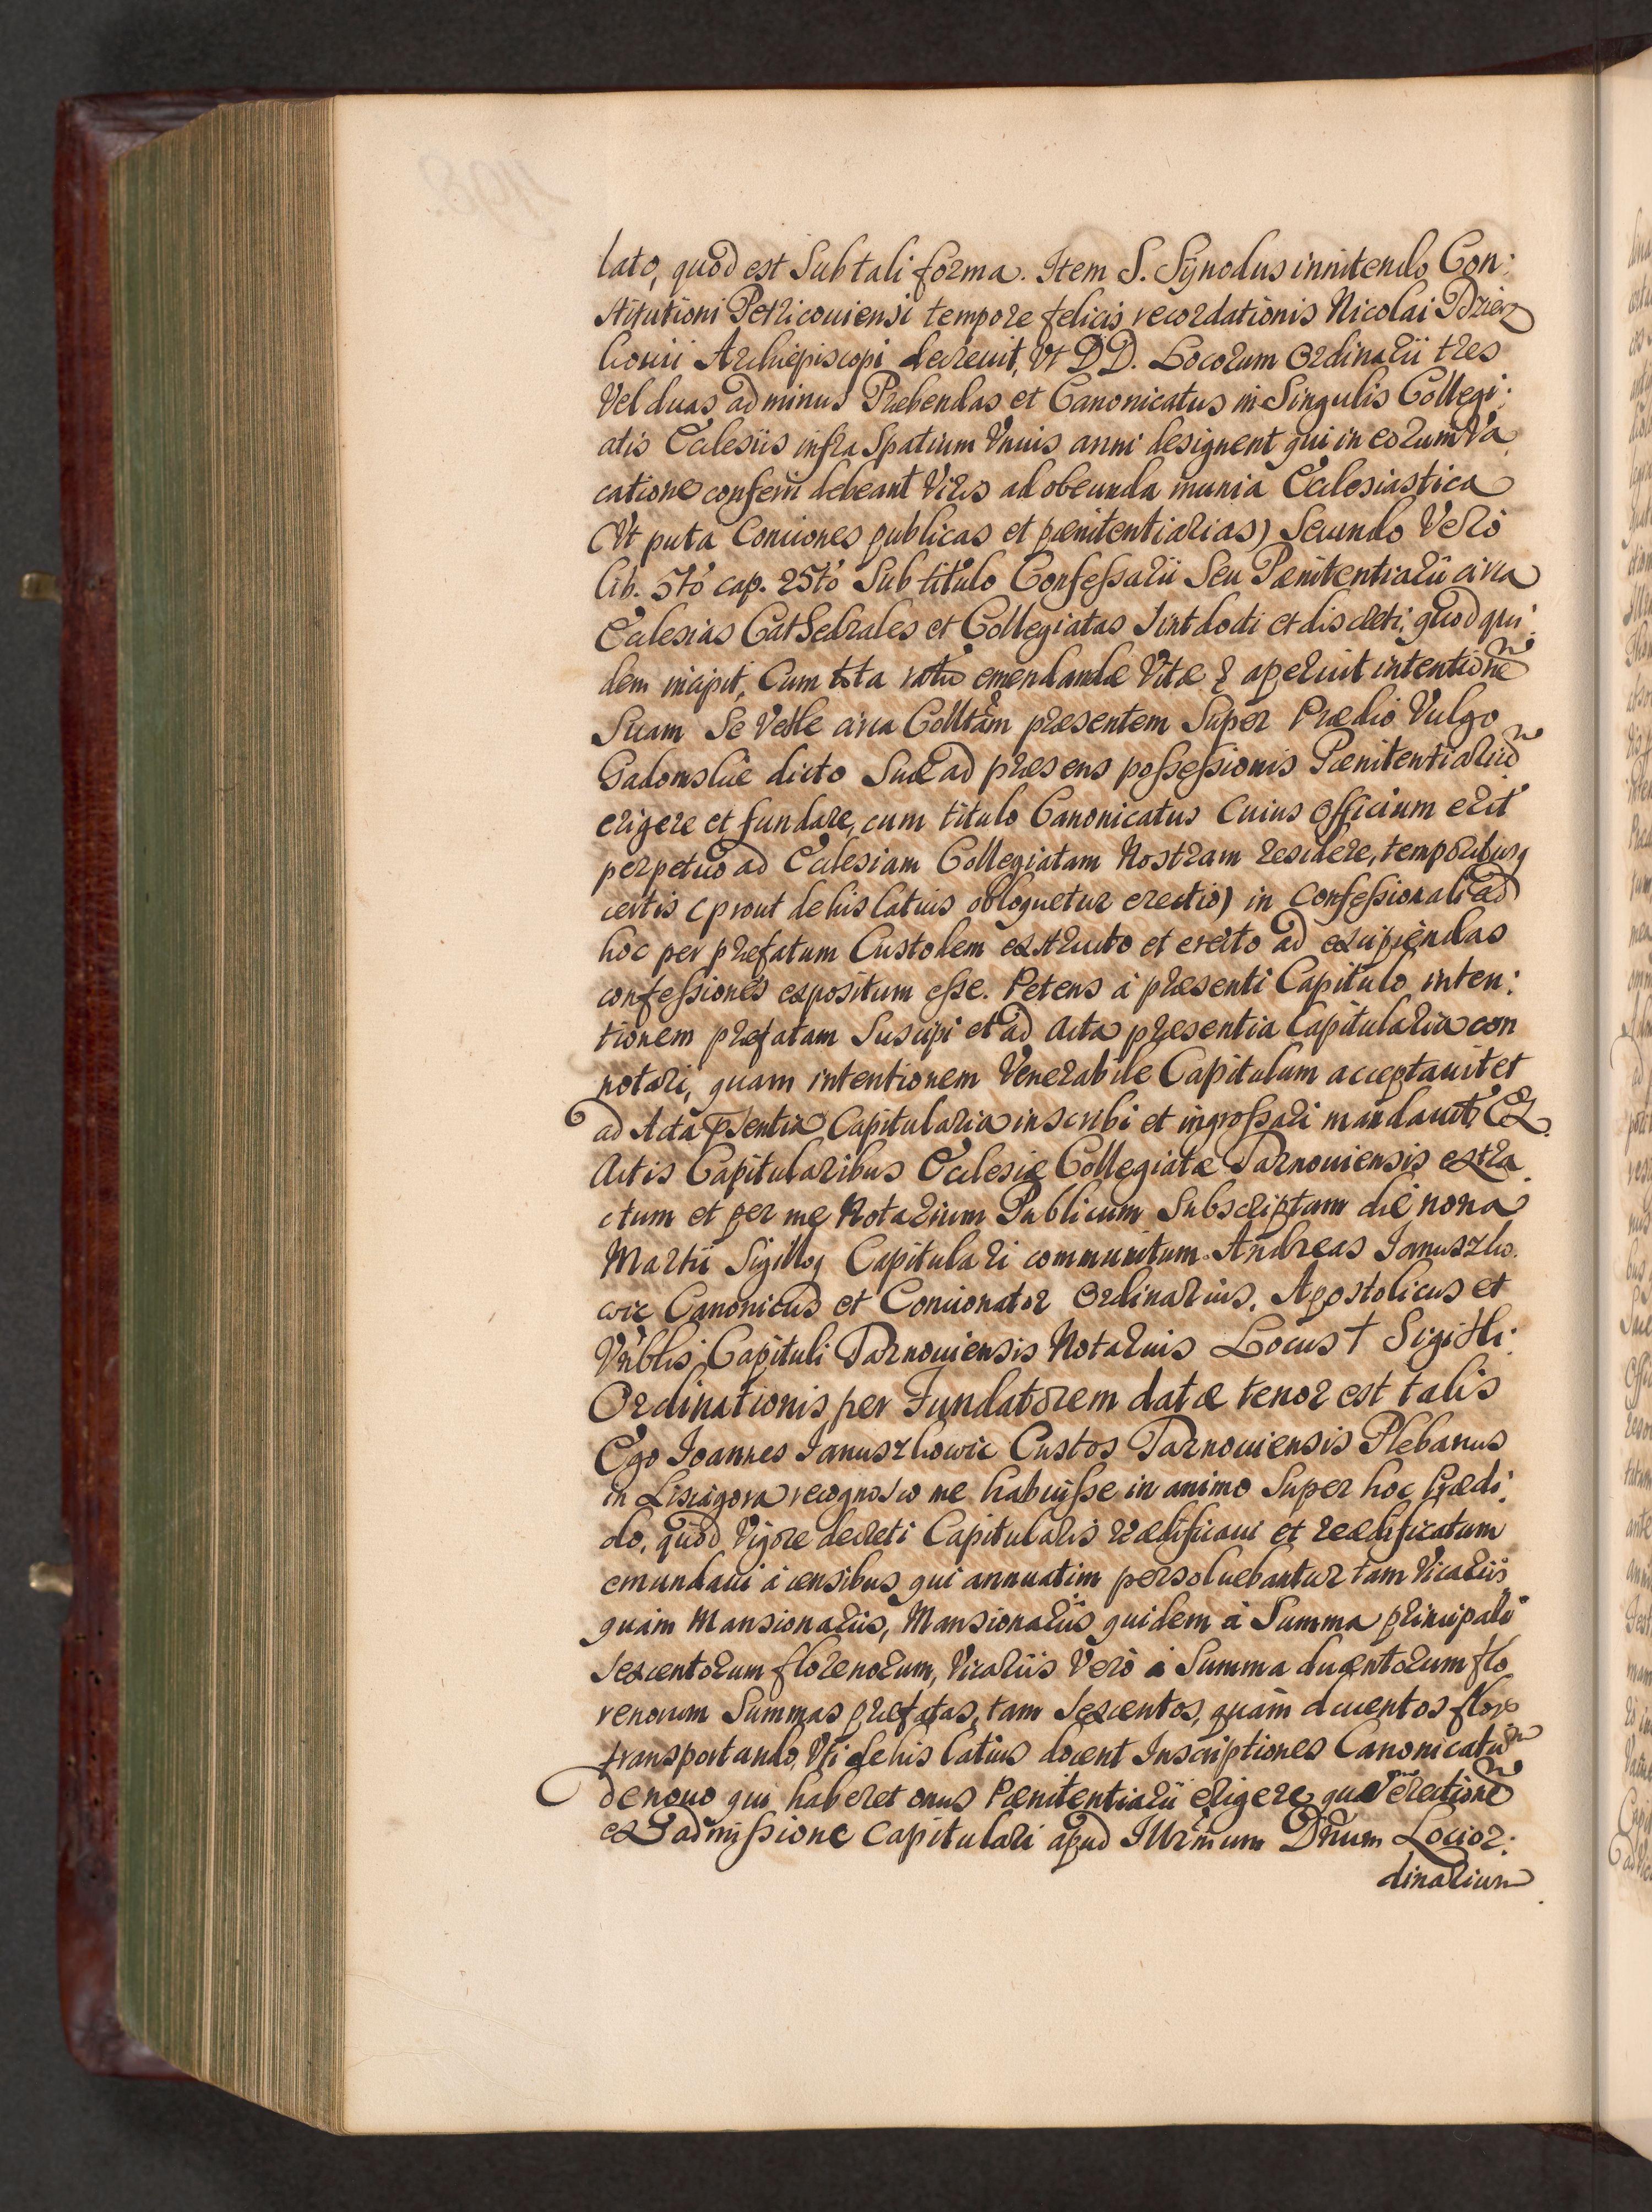 lato, quod est Sub tali forma. Item S. Synodus innitendo Con:
stitutioni Petricouiensi tempore felicis recordationis Nicolai Dzierz
houii Archiepiscopi decreuit, Vt DD. Locorum Ordinarii tres
Vel duas ad minus Præbendas et Canonicatus in Singulis Collegi:
atis Ecclesiis infra Spatium Vnuis anni designent qui in eorum Va
catione conferri debeant Viris ad obeunda munia Ecclesiastica
(Vt puta Conciones publicas et pœnitentiarias) Secundo Vero
Lib. 5to cap. 25to Sub titulo Confessarii Seu Pœnitentiarii circa
Ecclesias Cathedrales et Collegiatas Sint docti et discreti; quod qui
dem incipit, Cum tota ratio emendandæ Vitæ & aperuit intentionē
Suam Se Velle circa Colltam præsentem Super Prædio Vulgo
dicto Suæ ad præsens possessionis Pœnitentiariū
erigere et fundare, cum titulo Canonicatus Cuius Officium erit
perpetuo ad Ecclesiam Collegiatam Nostram residere, temporibusq
certis (prout de his latius obloquetur erectio) in Confessionali ad
hoc per præfatum Custodem exstructo et erecto ad excipiendas
confessiones expositum esse. Petens à præsenti Capitulo inten:
tionem præfatam Suscipi et ad Acta præsentia Capitularia con
notari, quam intentionem Venerabile Capitulum acceptauit et
ad Acta p̄sentia Capitularia inscribi et ingrossari mandauit, Ex
Actis Capitularibus Ecclesiæ Collegiatæ Tarnouiensis extra
ctum et per me Notarium Publicum Subscriptum die nona
Martii Sigilloq Capitulari communitum. Andreas Januszko.
wic Canonicus et Concionator Ordinarius. Apostolicus et
Vnblis Capituli Tarnouiensis Notarius Locus † Sigilli.
Ordinationis per Fundatorem datæ tenor est talis
Ego Joannes Januszkowic Custos Tarnouiensis Plebanus
in Lisiagora recognosco me habuisse in animo Super hoc Prædi
do, quod Vigore decreti Capitularis reædificaui et reædificatum
emundaui à censibus qui annuatim persoluebantur tam Vicariis
quam Mansionariis, Mansionariis quidem à Summa principali
Sexcentorum florenorum, Vicariis Vero à Summa ducentorum flo
renorum Summas præfatas, tam Sexcentos, quam ducentos flor
transportando, Vti de his latius docent Inscriptiones Canonicatū
de nouo qui haberet onus Pœnitentiarii erigere quā erectionē
ex admissione Capitulari apud Illrmum Dnum Loci or:
dinarium